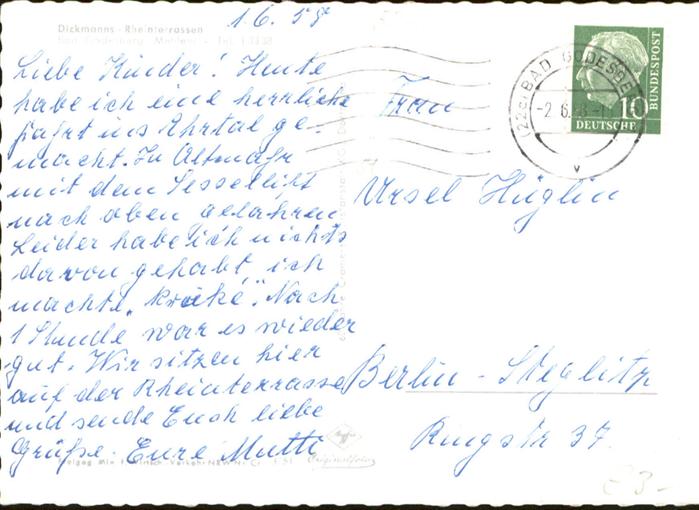 1.6.58
Dickmanns - Rheinterrassen
Bad Godesberg - Mehlem
Liebe Kinder! Heute
habe ich eine herrliche
Fahrt ins Ahrtal ge-
macht. In Altenahr
mit dem Sessellift
nach oben gefahren
Leider habe ich nichts
davon gehabt, ich
machte „kräke". Nach
1 Stunde war es wieder
gut. Wir sitzen hier
auf der Rheinterrasse
und sende Euch liebe
Grüße. Eure Mutti
Originalfoto
Frau
Ursel Hüglin
Berlin - Steglitz
Ringstr 37.
(22c) BAD GODESBE
-2.6.58
DEUTSCHE
BUNDESPOST
10